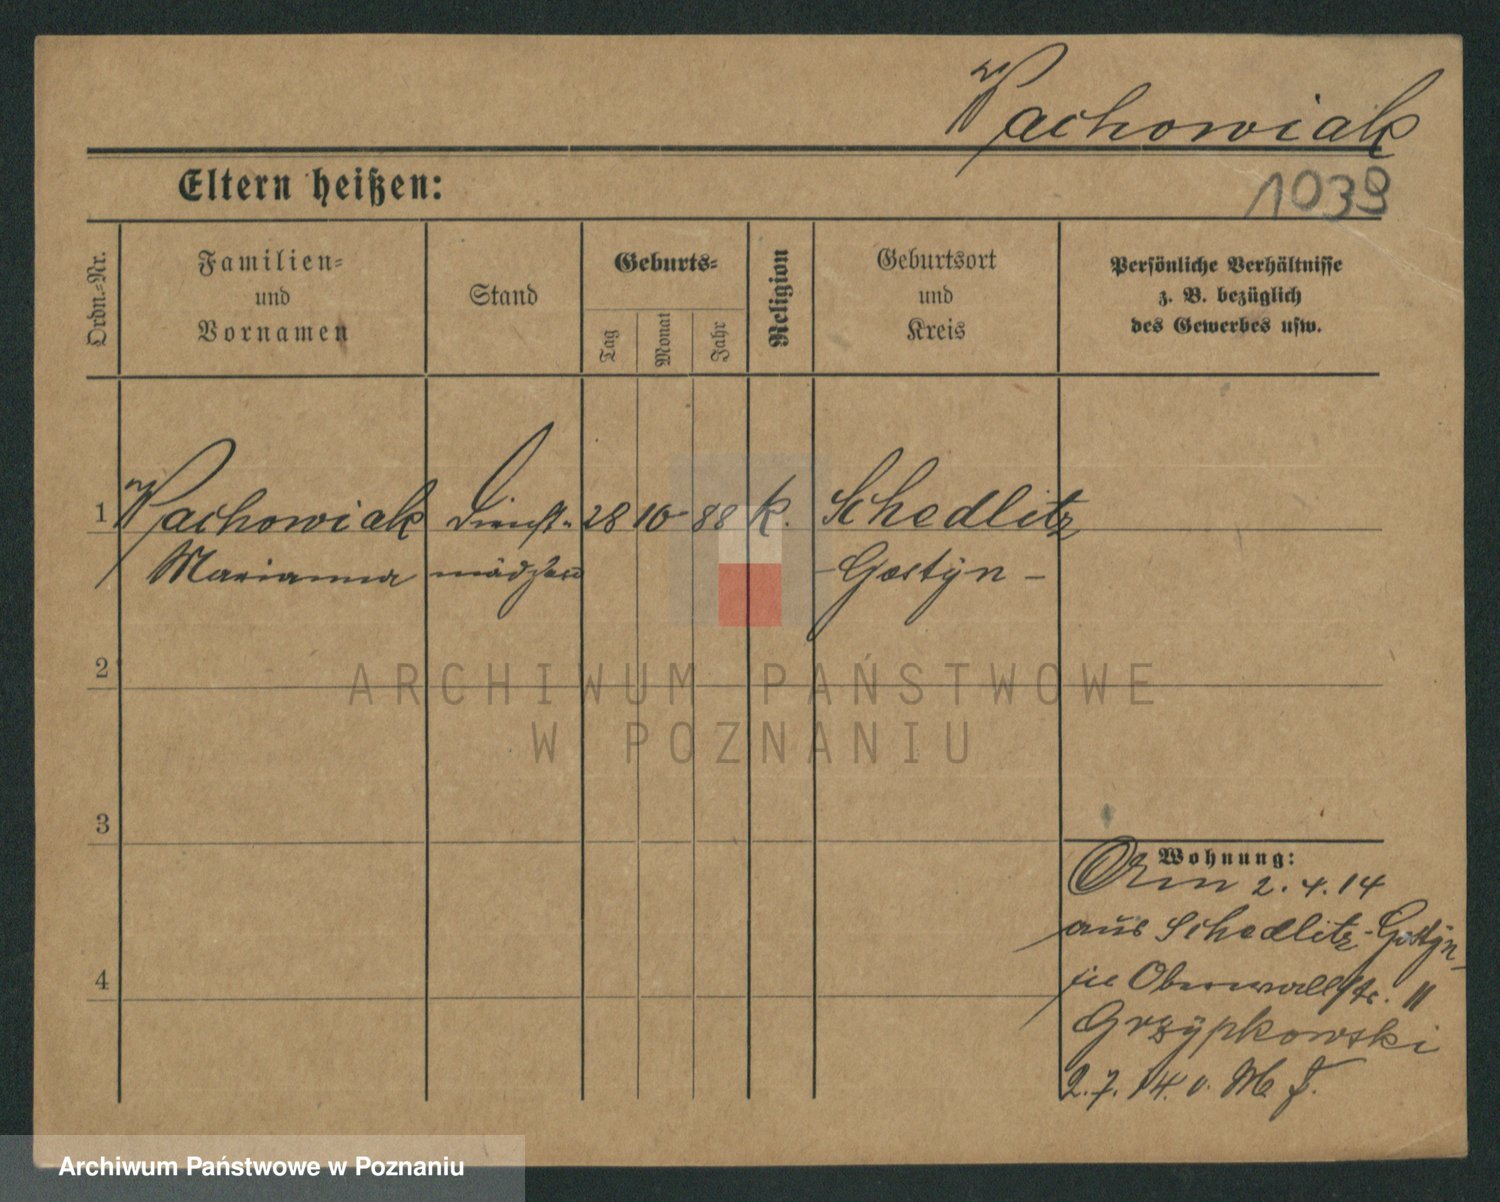 Wachowiak
Eltern heißen:
1039
Ordn.-Nr.
Familien-
und
Vornamen
Stand
Geburts-
Tag
Monat
Jahr
Religion
Geburtsort
und
Kreis
Persönliche Verhältnisse
z. B. bezüglich
des Gewerbes usw.
1 Wachowiak Dienst- 28 10 88 k. Schedlitz
Marianna mädchen - Gostÿn -
2
ARCHIWUM PAŃSTWOWE
W POZNANIU
3
Wohnung:
2.4.14
aus Schedlitz-Gostÿn-
in Oberwallstr. 11
Grzÿpkowski
2.7.14. v. M. F.
4
Archiwum Państwowe w Poznaniu